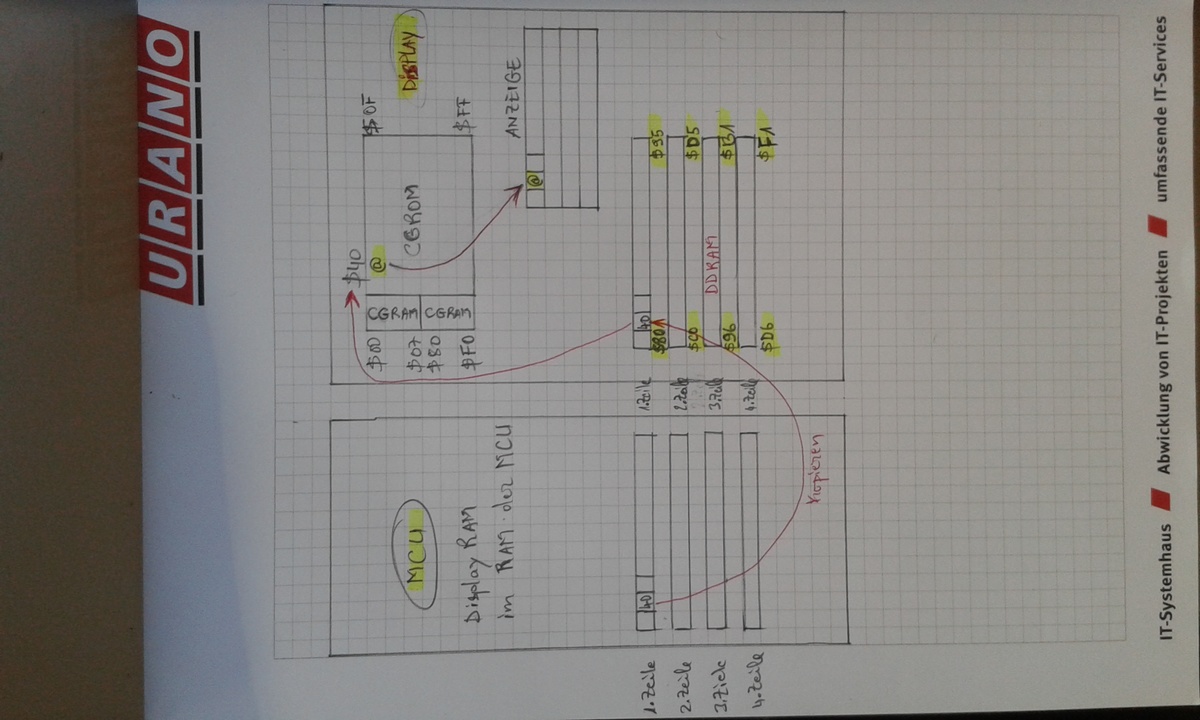 URANO
MCU
Display RAM
im RAM der MCU
1.Zeile
40
2.Zeile
3.Zeile
4.Zeile
Kopieren
DISPLAY
$00
$07
$80
$F0
CGRAM
CGRAM
$40
@
CGROM
$0F
$FF
ANZEIGE
@
1.Zeile
$80
40
$95
2.Zeile
$C0
$D5
3.Zeile
$96
DDRAM
4.Zeile
$D6
$F1
IT-Systemhaus Abwicklung von IT-Projekten umfassende IT-Services